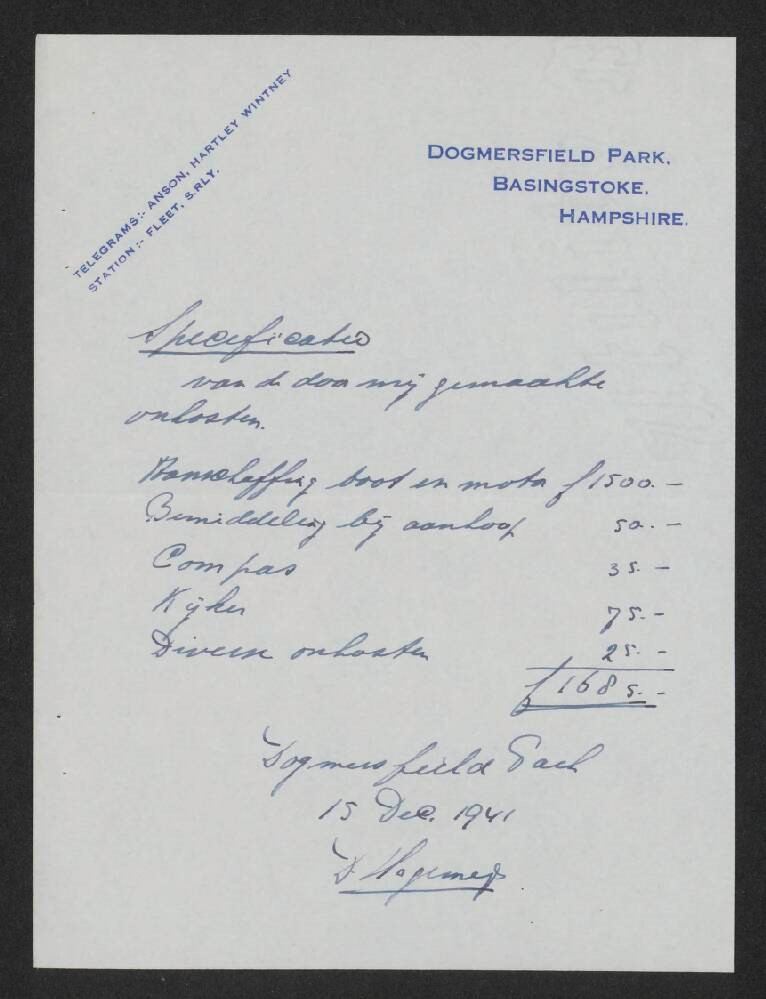 TELEGRAMS:- ANSON, HARTLEY WINTNEY
STATION:- FLEET, S.RLY.
DOGMERSFIELD PARK,
BASINGSTOKE,
HAMPSHIRE.
Specificatie
van de door mij gemaakte
onkosten.
Aanschaffing boot en motor f 1500.-
Bemiddeling bij aankoop 50.-
Compas 35.-
Kijker 75.-
Diverse onkosten 25.-
f 1685.-
Dogmersfield Park
15 Dec. 1941